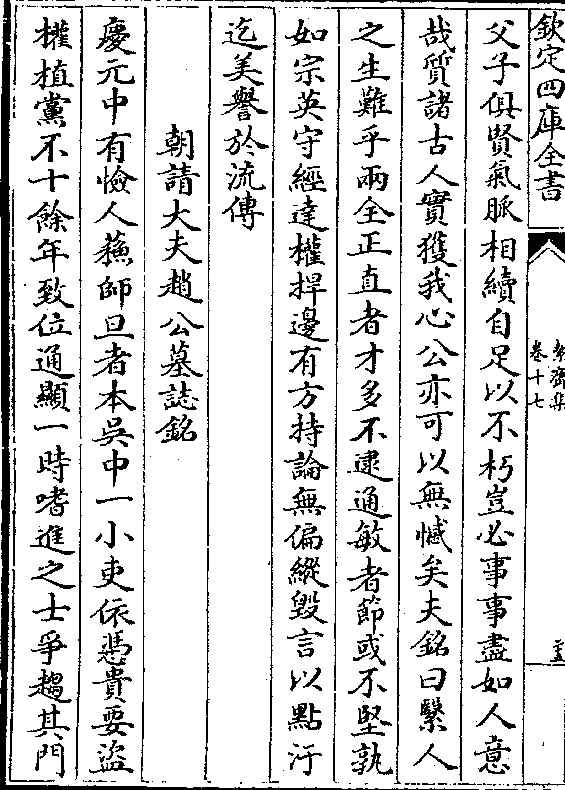 欽定四庫全書
絜齋集
卷十七
父子俱賢氣脈相續自足以不朽豈必事事盡如人意
哉質諸古人實獲我心公亦可以無憾矣夫銘曰繄人
之生難乎兩全正直者才多不逮通敏者節或不堅孰
如宗英守經達權捍邊有方持論無偏縱毀言以點汙
迄美譽於流傳
朝請大夫趙公墓誌銘
慶元中有憸人蘇師旦者本吳中一小吏依憑貴要盜
權植黨不十餘年致位通顯一時嗜進之士爭趨其門